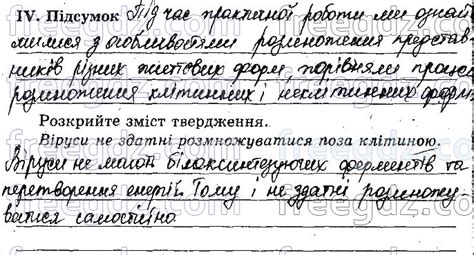 IV. Підсумок Під час практичної роботи ми ознайо
милися з особливостями розмноження представ
ників різних життєвих форм, порівняли процес
розмноження клітинних і неклітинних форм
Розкрийте зміст твердження.
Віруси не здатні розмножуватися поза клітиною.
Віруси не мають білоксинтезуючих ферментів та
перетворення енергії. Тому і не здатні розмножу-
ватися самостійно